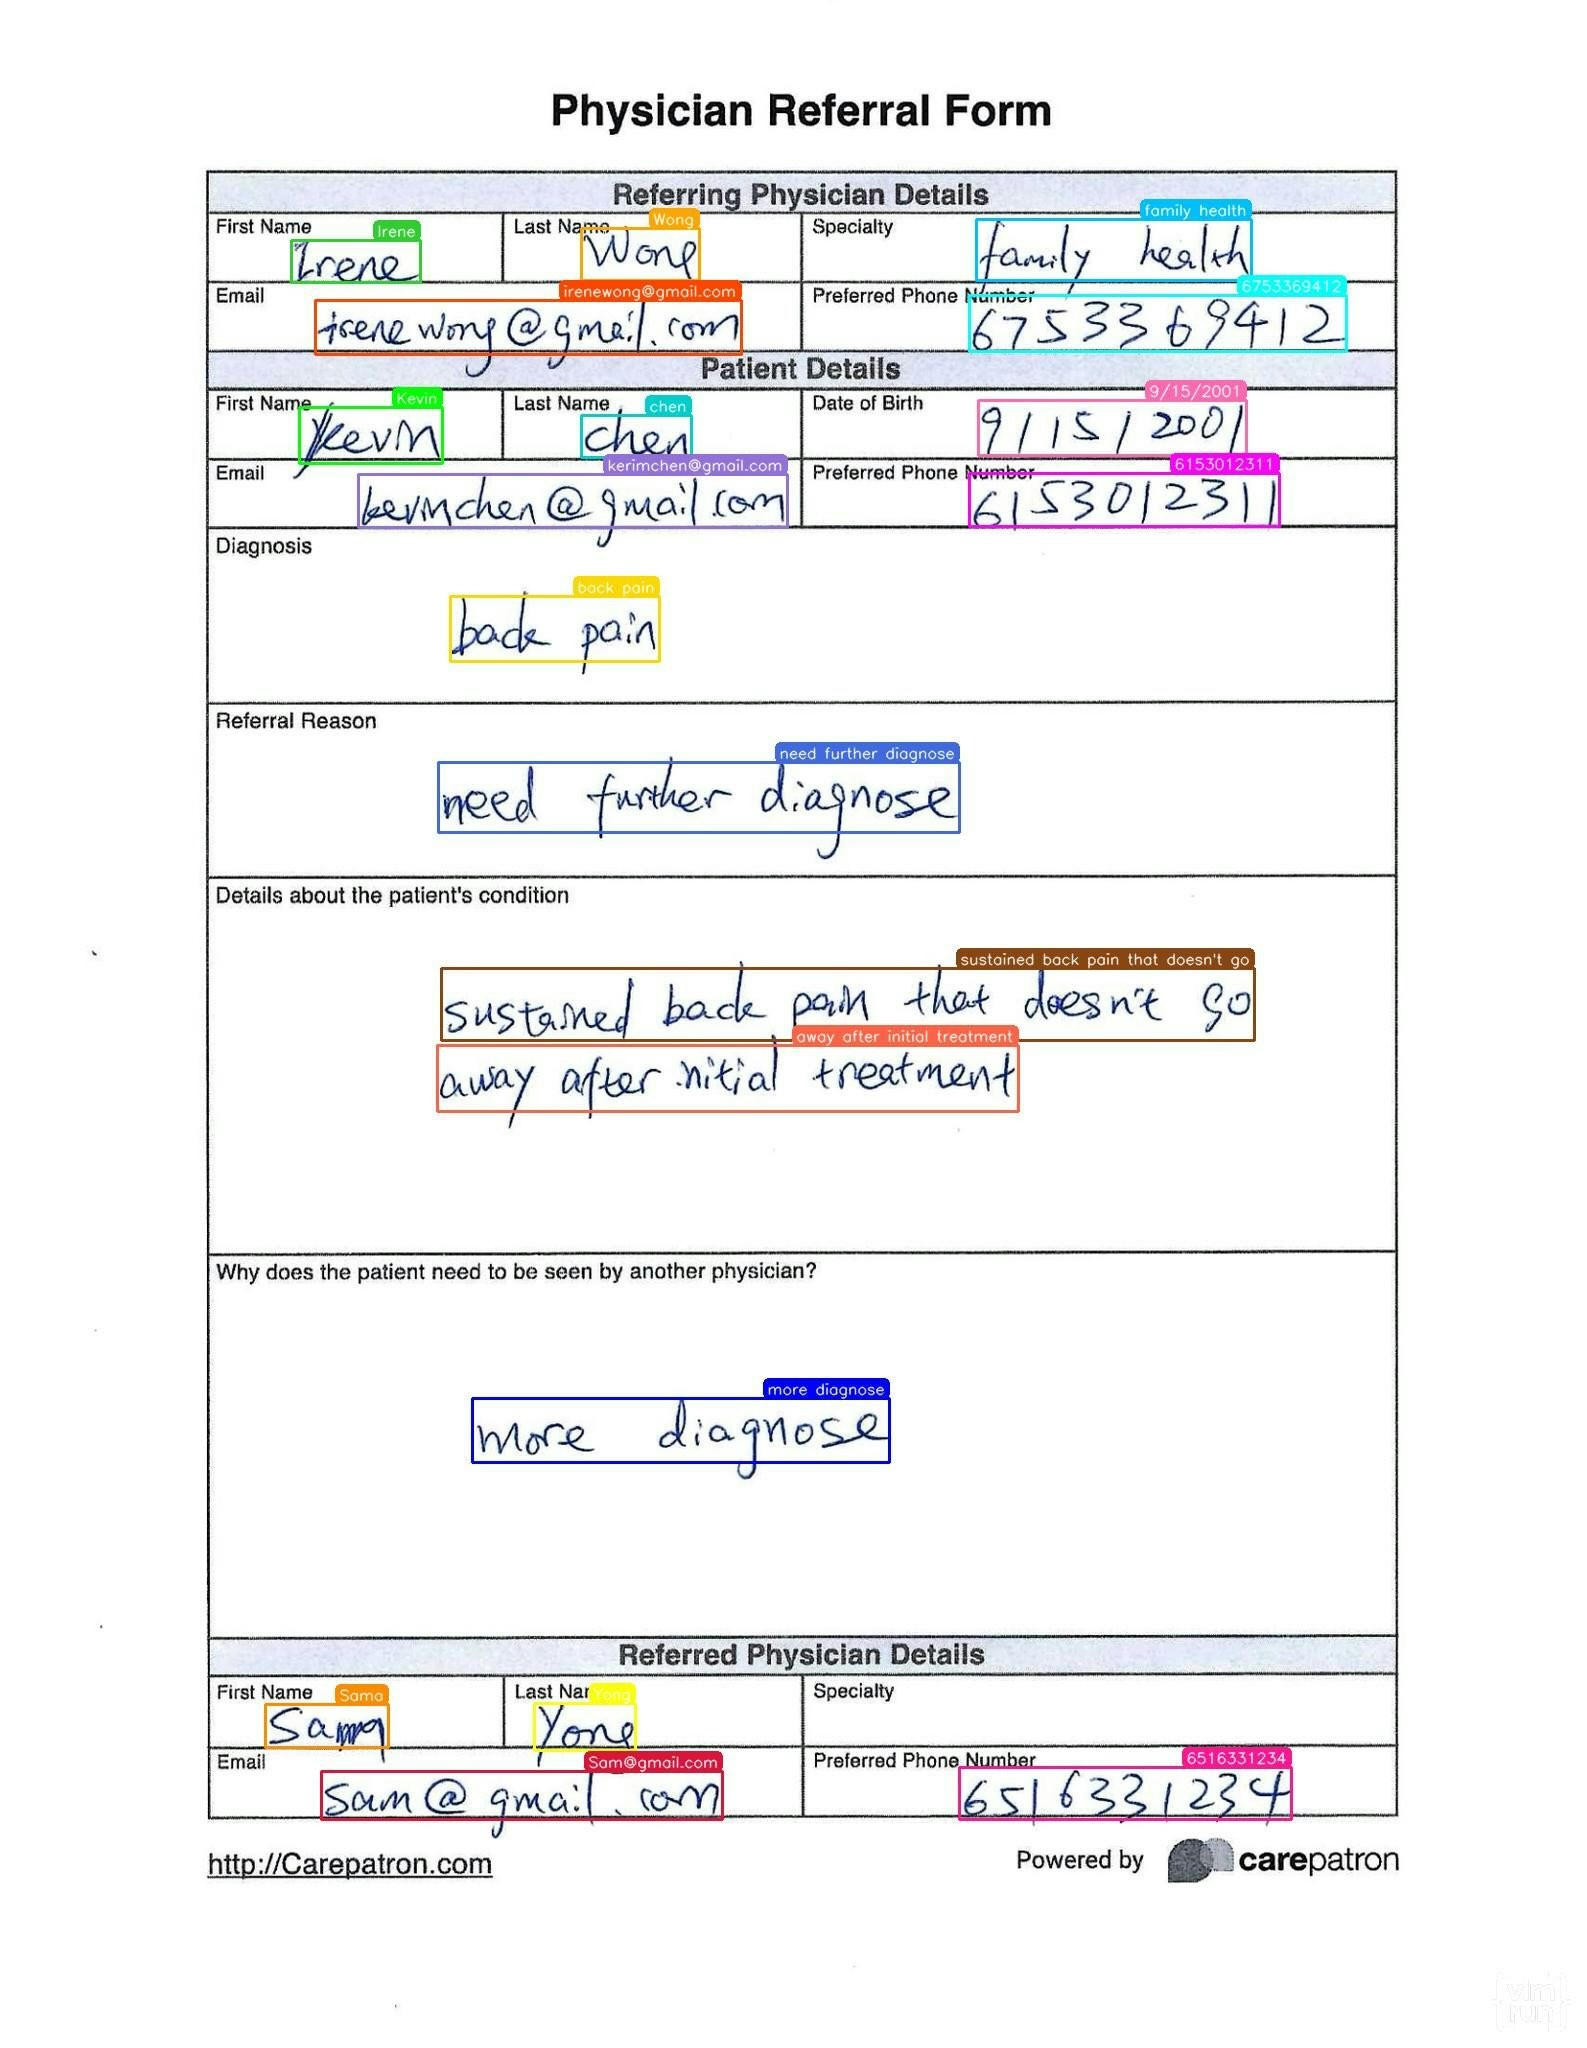 Physician Referral Form
Referring Physician Details
First Name Irene
Irene
Last Name Wong
Wong
Specialty family health
family health
Email irenewong@gmail.com
irenewong@gmail.com
Preferred Phone Number 6753369412
6753369412
Patient Details
First Name Kevin
Kevin
Last Name chen
chen
Date of Birth 9/15/2001
9/15/2001
Email kerimchen@gmail.com
kevinchen@gmail.com
Preferred Phone Number 6153012311
6153012311
Diagnosis
back pain
back pain
Referral Reason
need further diagnose
need further diagnose
Details about the patient's condition
sustained back pain that doesn't go
sustained back pain that doesn't go
away after initial treatment
away after initial treatment
Why does the patient need to be seen by another physician?
more diagnose
more diagnose
Referred Physician Details
First Name Sama
Last Nar Yong
Yong
Specialty
Email Sam@gmail.com
Sam@gmail.com
Preferred Phone Number 6516331234
6516331234
http://Carepatron.com
Powered by carepatron
vlm
run